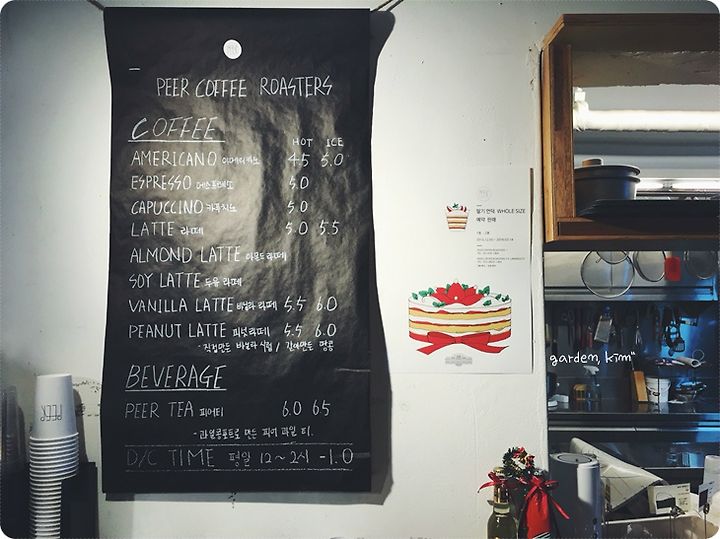 PEER COFFEE ROASTERS
COFFEE
HOT ICE
AMERICANO 아메리카노 4.5 5.0
ESPRESSO 에스프레소 5.0
CAPUCCINO 카푸치노 5.0
LATTE 라떼 5.0 5.5
ALMOND LATTE 아몬드라떼
SOY LATTE 두유 라떼
VANILLA LATTE 바닐라 라떼 5.5 6.0
PEANUT LATTE 피넛라떼 5.5 6.0
- 직접만든 바닐라 시럽 / 갈아만든 땅콩
BEVERAGE
PEER TEA 피어티 6.0 65
- 과일콩포트로 만든 피어 과일 티.
D/C TIME 평일 12~2시 -1.0
딸기 언덕 WHOLE SIZE
예약 판매
garden, kim"
PEER